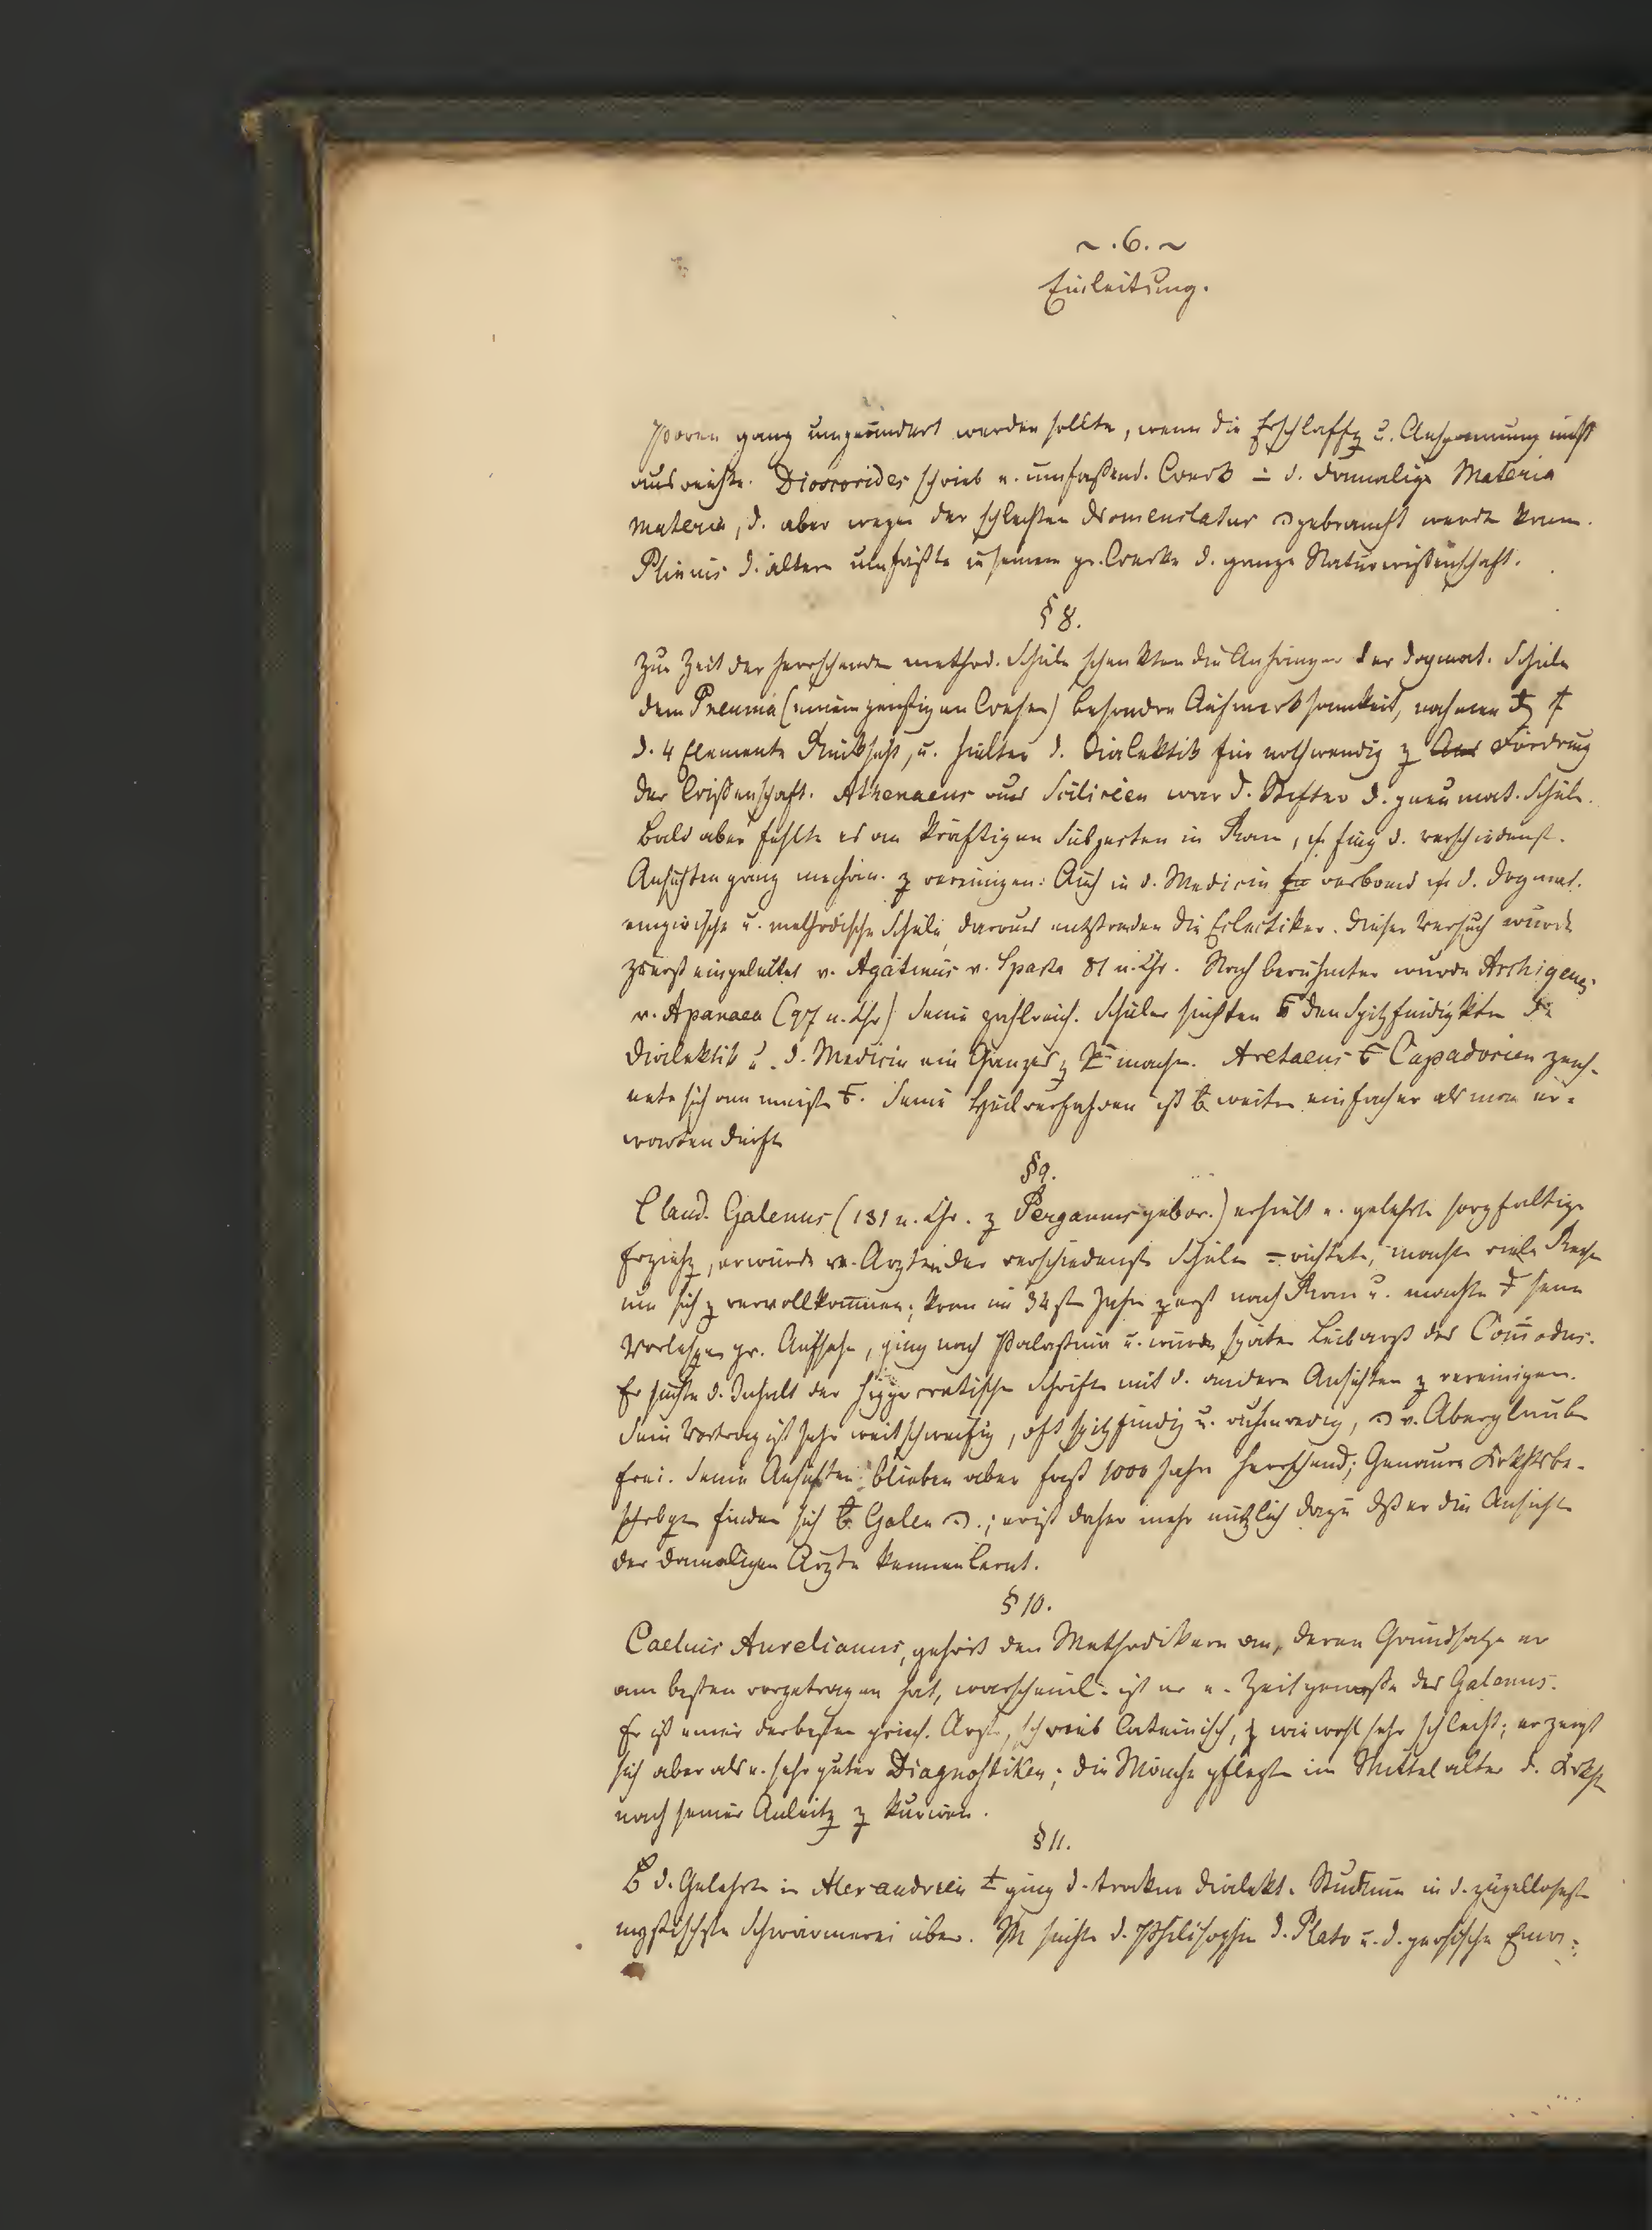 ~ . 6. ~
Einleitung.
Poren ganz umgeändert werden sollte, wenn die Erschlaffg u. Anspannung nicht
ausreichte. Dioscorides schrieb e. umfaßend. Werk ÷ d. damalige Materia
materia, d. aber wegen der schlechten Nomenclatur gebraucht werde kann.
Plinius d. ältere umfaßte in seinem gr. Werke d. ganze Naturwißenschaft.
§ 8.
Zur Zeit der herrschende method. Schule schenkten die Anhänger der dogmat. Schule
dem Pneuma (einem geistigen Wesen) besondre Aufmerksamkeit, nahmen
d. 4 Elemente Rücksicht, u. hielten d. Dialektik für nothwendig z Fördrung
der Wißenschaft. Athenaeus aus Cilicien war d. Stifter d. pneumat. Schule.
Bald aber fehlte es an kräftigen Subjecten in Rom, fing d. verschiedenst.
Ansichten ganz mechan. z vereinigen: Auch in d. Medicin verband d. dogmat.
empirische u. methodische Schule, daraus entstanden die Eclectiker. Dieser Versuch wurde
zuerst eingeleitet v. Agatinus v. Sparta 81 n. Chr. Noch berühmter wurde Archigenes
v. Apamaea (97 n. Chr) Seine zahlreich. Schüler suchten den Spitzfindigkten
Dialektik u. d. Medicin ein Ganzes z mache. Aretaeus Capadocien zeich-
nete sich am meiste. Seine Heilverfahren ist weiten einfacher als man er-
warten dürfte
§ 9.
Claud. Galenus (131 n. Chr. z Pergamus gebor.) erhielt e. gelehrte sorgfaltige
Erziehg, er wurde v. Arzten der verschiedenste Schulen =richtete, machte viele Reise
um sich z vervollkommen; kam im 34st Jahre zerst nach Rom u. machte seine
Vorlesgen gr. Aufsehe, ging nach Palastina u. wurde später Leibarzt des Com̄odus.
Er suchte d. Inhalt der hippocratische Schrifte mit d. andere Ansichten z vereinigen.
Sein Vortrag ist sehr weitschweifig, oft spitzfindig u. ruhmredig, v. Aberglaube
frei. Seine Ansichten blieben aber fast 1000 Jahre herrschend; Genauere Krkhtsbe-
schrbgen finden sich Galen; er ist daher mehr nützlich dazu dß er die Ansichte
der damaligen Arzte kennen lernt.
§ 10.
Caelius Aurelianus, gehört den Methodikern an, deren Grundsatze er
am besten vorgetragen hat, warscheinl. ist er e. Zeitgenoße des Galenus.
Er ist einer der beßten griech. Arzte, schreib lateinisch, wie wohl sehr schlecht; er zeigt
sich aber als e. sehr guter Diagnostiker; die Mönche pflegte im Mittelalter d. Krkh
nach seiner Anleitg z kuriren.
§ 11.
d. Gelehrte in Alexandrien ging d. trockne dialekt. Studium in d. zügelloseste
mystischste Schwärmerei über. M suchte d. Philosophie d. Plato u. d. persische Ema=